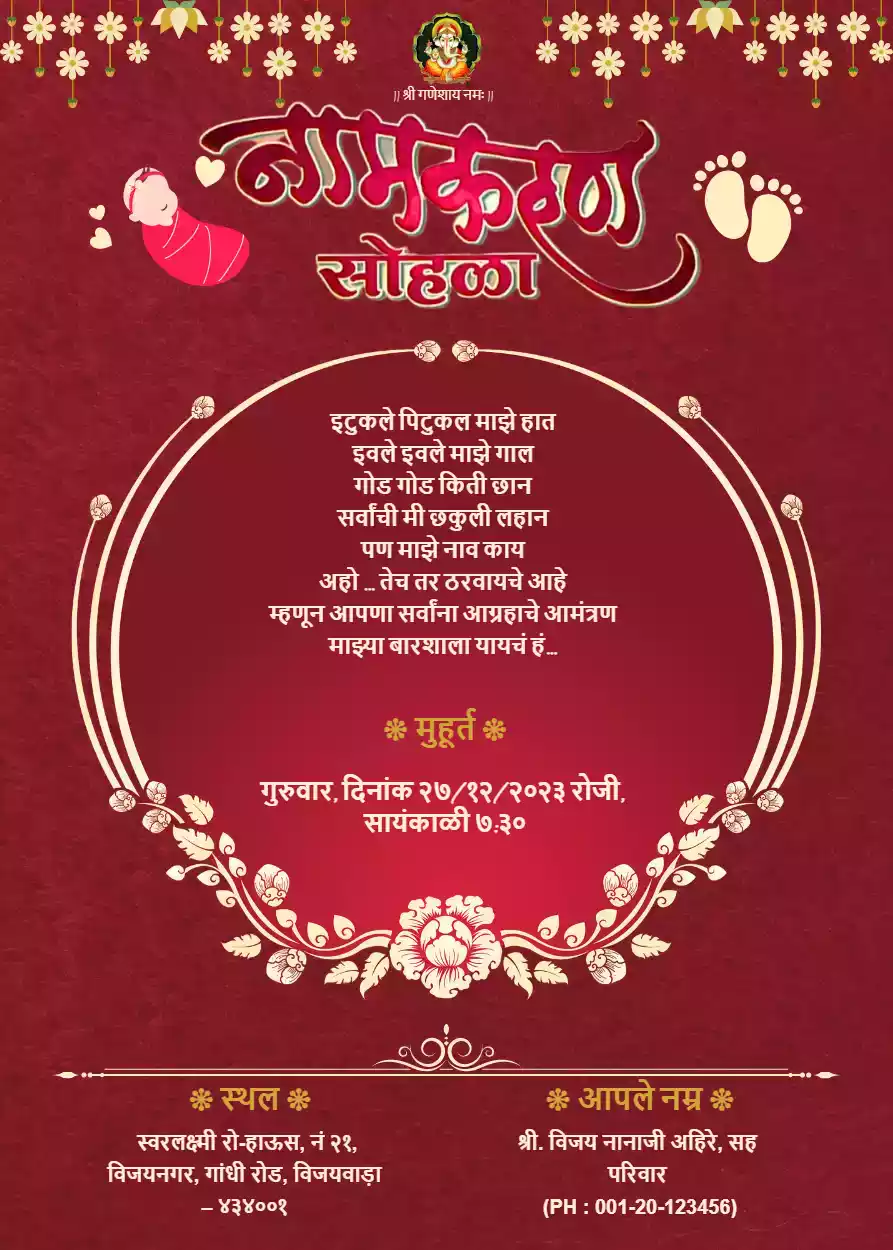 || श्री गणेशाय नमः ||
नामकरण
सोहळा
इटुकले पिटुकल माझे हात
इवले इवले माझे गाल
गोड गोड किती छान
सर्वांची मी छकुली लहान
पण माझे नाव काय
अहो ... तेच तर ठरवायचे आहे
म्हणून आपणा सर्वांना आग्रहाचे आमंत्रण
माझ्या बारशाला यायचं हं...
❇ मुहूर्त ❇
गुरुवार, दिनांक २७/१२/२०२३ रोजी,
सायंकाळी ७:३०
❇ स्थल ❇
स्वरलक्ष्मी रो-हाऊस, नं २१,
विजयनगर, गांधी रोड, विजयवाड़ा
– ४३४००१
❇ आपले नम्र ❇
श्री. विजय नानाजी अहिरे, सह
परिवार
(PH : 001-20-123456)